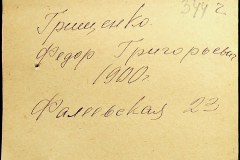 344 г
Грищенко
Федор Григорьевич
1900 г
Фалеевская 23